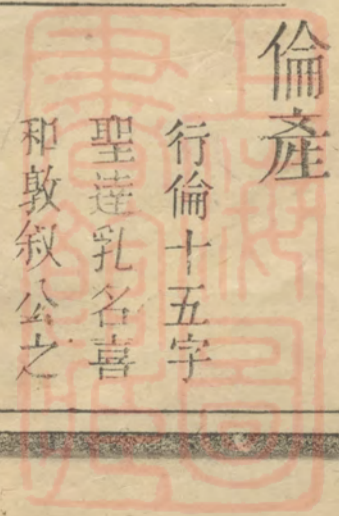 倫產
行倫十五字
聖達乳名喜
和敦敘公之